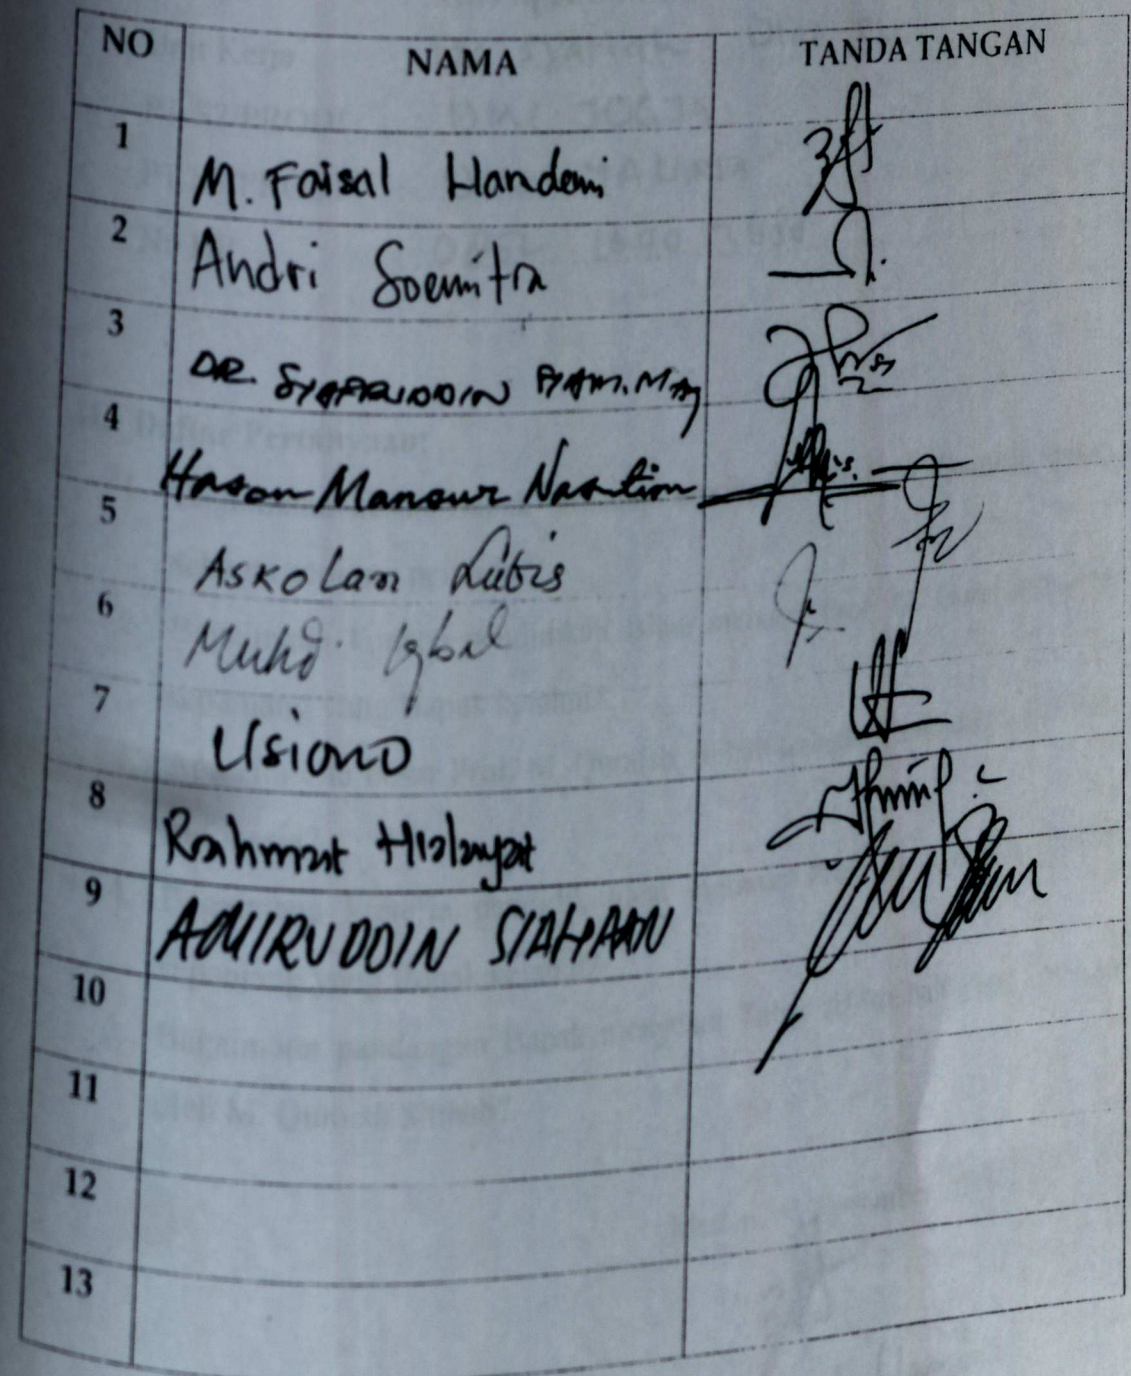 NO NAMA TANDA TANGAN
1 M. Faisal Hamdani
2 Andri Soemitra
3 DR. SYAFRUDDIN SYAM. M.Ag
4 Hasan Mansur Nasution
5 Askolan Lubis
6 Muhd. Iqbal
7 Usiono
8 Rahmat Hidayat
9 AMIRUDDIN SIAHAAN
10
11
12
13